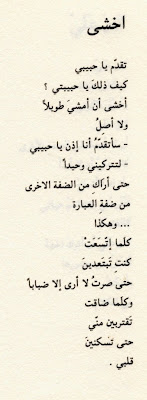 اخشى
تقدّم يا حبيبي
كيف ذلك يا حبيبتي ؟
أخشى أن أمشيَ طويلاً
ولا أصِلُ
- سأتقدّمُ أنا إذن يا حبيبي
- لتتركيني وحيداً
حتى أراكِ من الضفة الاخرى
من ضفةِ العبارة
... وهكذا
كلّما إتّسَعَتْ
كنتِ تَبتَعدينَ
حتى صرتُ لا أرى إلا ضباباً
وكلّما ضاقت
تَقتربين منّي
حتى تَسكنينَ
قلبي .